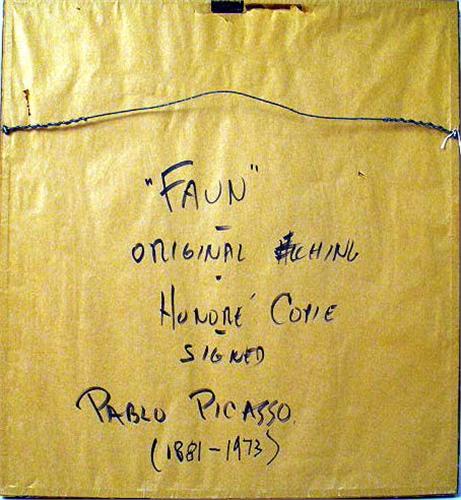 "FAUN"
-
ORIGINAL ETCHING
-
HUNDRÉ COPIE
-
SIGNED
PABLO PICASSO.
(1881-1973)